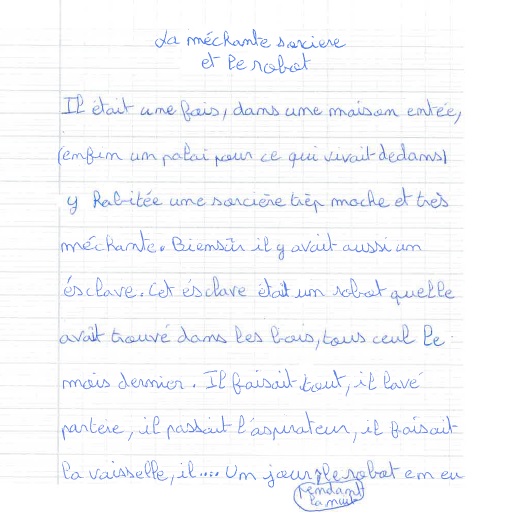 La méchante sorciere
et le robot
Il était une fois, dans une maison entée,
(enfin un palai pour ce qui vivait dedans)
y habitée une sorcière trèp moche et très
méchante. Biensûr il y avait aussi un
ésclave. Cet ésclave était un robot quelle
avait trouvé dans les bois, tous ceul le
mois dernier. Il faisait tout, il lavé
parteire, il passait l'aspirateur, il faisait
la vaisselle, il.... Un jour, le robot em eu
pendant
la nuit